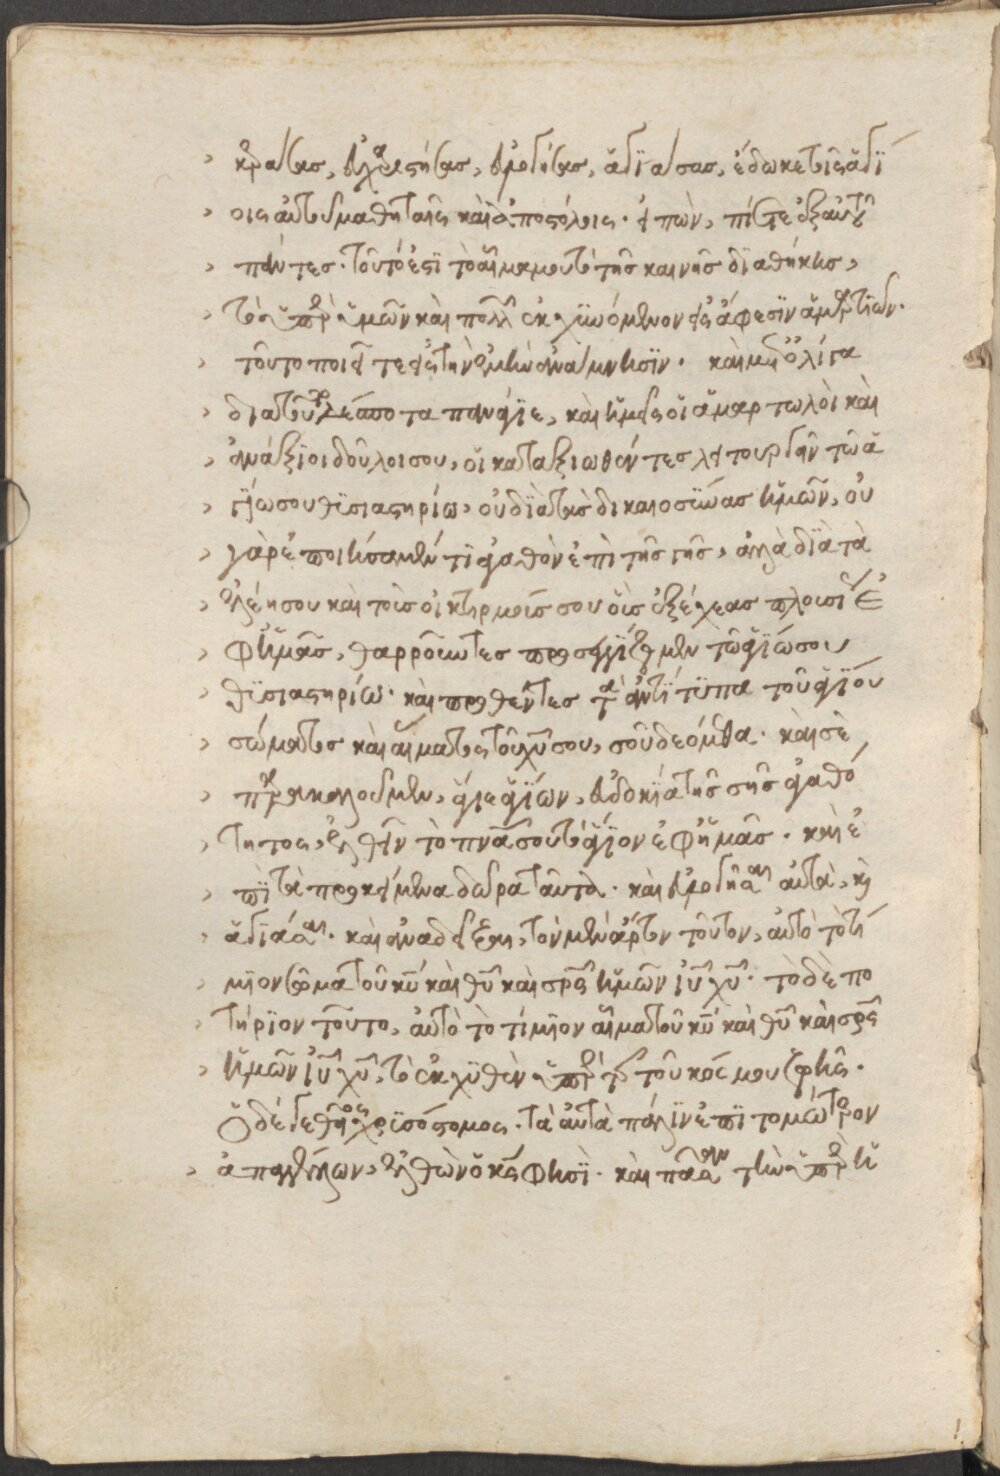 κεράσας, εὐχαριστήσας, εὐλογήσας, ἁγϊάσας, ἔδωκε τοῖς ἁγί
οις αὐτοῦ μαθηταῖς καὶ ἀποστόλοις· εἰπὼν, πίετε ἐξ αὐτοῦ
πάντες· τοῦτό ἐστϊ τὸ αἷμα μου τὸ τῆς καινῆς δϊαθήκης,
τὸ ὑπὲρ ὑμῶν καὶ πολλ ἐκχϋνόμενον εἰς ἄφεσϊν ἁμαρτϊῶν·
τοῦτο ποιεῖτε εἰς τὴν ἐμὴν ἀνάμνησϊν· καὶ μετ ὀλίγα
διατοῦτο δέσποτα πανάγϊε, καὶ ἡμεῖς οἱ ἁμαρτωλοὶ καὶ
ἀνάξϊοι δοῦλοι σου, οἱ καταξιωθέντες λειτουργεῖν τῶ ἁ
γίω σου θϋσιαστηρίω, οὐ δϊὰ τὰς δικαιοσύνας ἡμῶν, οὐ
γὰρ ἐποιήσαμέν τϊ ἀγαθὸν ἐπὶ τῆς γῆς, ἀλλὰ δϊὰ τὰ
ἐλέη σου καὶ τοὺς οἰκτιρμούς σου οὓς ἐξέχεας πλουσίως ἐ
φ' ἡμᾶς, θαρροῦντες προσεγγίζομεν τῶ ἁγίω σου
θϋσιαστηρίω· καὶ προθέντες τὰ ἀντίτϋπα τοῦ ἁγίου
σώματος καὶ αἵματος τοῦ χυ σου, σοῦ δεόμεθα· καὶ σὲ
παρακαλοῦμεν, ἅγιε ἁγίων, εὐδοκία τῆς σῆς ἀγαθό
τητος, ἐλθεῖν τὸ πνα σου τὸ ἅγϊον ἐφ' ἡμᾶς· καὶ ἐ
πϊ τὰ προκείμενα δῶρα ταῦτα· καὶ εὐλογῆσαι αὐτὰ, κ
ἁγϊάσαι· καὶ ἀναδεῖξαι, τὸν μὲν ἄρτον τοῦτον, αὐτὸ τὸ τί
μϊον σῶμα τοῦ κυ καὶ θυ καὶ σρς ἡμῶν ιυ χυ· τὸ δὲ πο
τήρϊον τοῦτο, αὐτὸ τὸ τίμϊον αἷμα τοῦ κυ καὶ θυ καὶ σρς
ἡμῶν ιυ χυ, τὸ ἐκχϋθὲν ὑπὲρ τῆς τοῦ κόσμου ζωῆς·
ὁ δέ γε θεῖος χρϋσόστομος, τὰ αὐτὰ πάλϊν ἐπϊ τομώτερον
ἀπαγγέλων, ἐλθὼν ὁ κς φησϊ· καὶ πᾶσαν τὴν ὑπὲρ ἡ